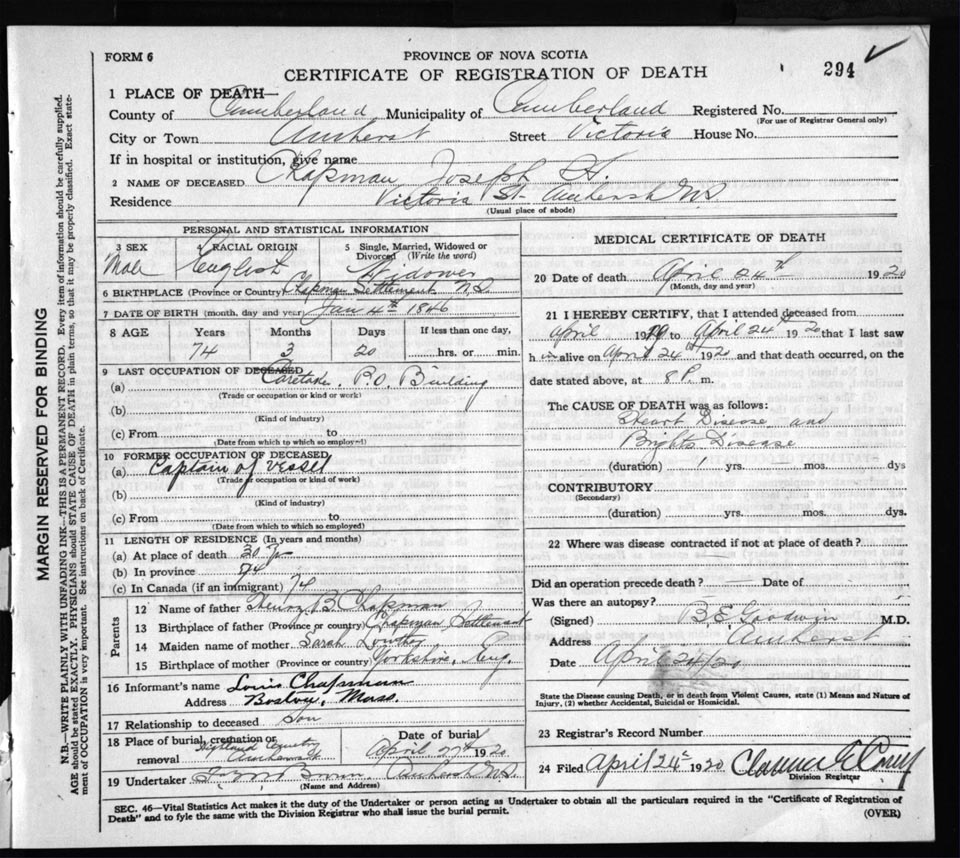 FORM 6
PROVINCE OF NOVA SCOTIA
CERTIFICATE OF REGISTRATION OF DEATH
294 ✓
1 PLACE OF DEATH—
County of Cumberland Municipality of Cumberland Registered No.
(For use of Registrar General only)
City or Town Amherst Street Victoria House No.
If in hospital or institution, give name
2 NAME OF DECEASED Chapman Joseph H.
Residence Victoria St- Amherst NS
(Usual place of abode)
PERSONAL AND STATISTICAL INFORMATION
3 SEX 4 RACIAL ORIGIN 5 Single, Married, Widowed or Divorced (Write the word)
Male English Widower
6 BIRTHPLACE (Province or Country) Chapman Settlement N.S.
7 DATE OF BIRTH (month, day and year) Jan 4th 1846
8 AGE Years Months Days If less than one day,
74 3 20 hrs. or min.
9 LAST OCCUPATION OF DECEASED
(a) Caretaker, P.O. Building
(Trade or occupation or kind or work)
(b)
(Kind of industry)
(c) From to
(Date from which to which so employed)
10 FORMER OCCUPATION OF DECEASED
(a) Captain of vessel
(Trade or occupation or kind of work)
(b)
(Kind of industry)
(c) From to
(Date from which to which so employed)
11 LENGTH OF RESIDENCE (In years and months)
(a) At place of death 30 yr
(b) In province 74
(c) In Canada (if an immigrant) 74
Parents
12 Name of father Henry B. Chapman
13 Birthplace of father (Province or country) Chapman Settlement
14 Maiden name of mother Sarah Lowther
15 Birthplace of mother (Province or country) Yorkshire, Eng.
16 Informant's name Louis Chapman
Address Boston, Mass.
17 Relationship to deceased Son
18 Place of burial, cremation or removal Highland Cemetery Amherst
Date of burial April 27th 1920
19 Undertaker Brown Amherst N.S.
(Name and Address)
MEDICAL CERTIFICATE OF DEATH
20 Date of death April 24th 1920
(Month, day and year)
21 I HEREBY CERTIFY, that I attended deceased from
April 1919 to April 24th 1920 that I last saw
h im alive on April 24th 1920 and that death occurred, on the
date stated above, at 8 P. m.
The CAUSE OF DEATH was as follows:
Heart Disease and
Brights Disease
(duration) 1 yrs. mos. dys
CONTRIBUTORY
(Secondary)
(duration) yrs. mos. dys.
22 Where was disease contracted if not at place of death?
Did an operation precede death? — Date of
Was there an autopsy?
(Signed) B.E. Goodwin M.D.
Address Amherst
Date April 24/20
State the Disease causing Death, or in death from Violent Causes, state (1) Means and Nature of
Injury, (2) whether Accidental, Suicidal or Homicidal.
23 Registrar's Record Number
24 Filed April 24th 1920 Clarence
Division Registrar
SEC. 46—Vital Statistics Act makes it the duty of the Undertaker or person acting as Undertaker to obtain all the particulars required in the "Certificate of Registration of
Death" and to fyle the same with the Division Registrar who shall issue the burial permit.
(OVER)
MARGIN RESERVED FOR BINDING
N.B.—WRITE PLAINLY WITH UNFADING INK—THIS IS A PERMANENT RECORD. Every item of information should be carefully supplied.
AGE should be stated EXACTLY. PHYSICIANS should STATE CAUSE OF DEATH in plain terms, so that it may be properly classified. Exact state-
ment of OCCUPATION is very important. See instructions on back of Certificate.